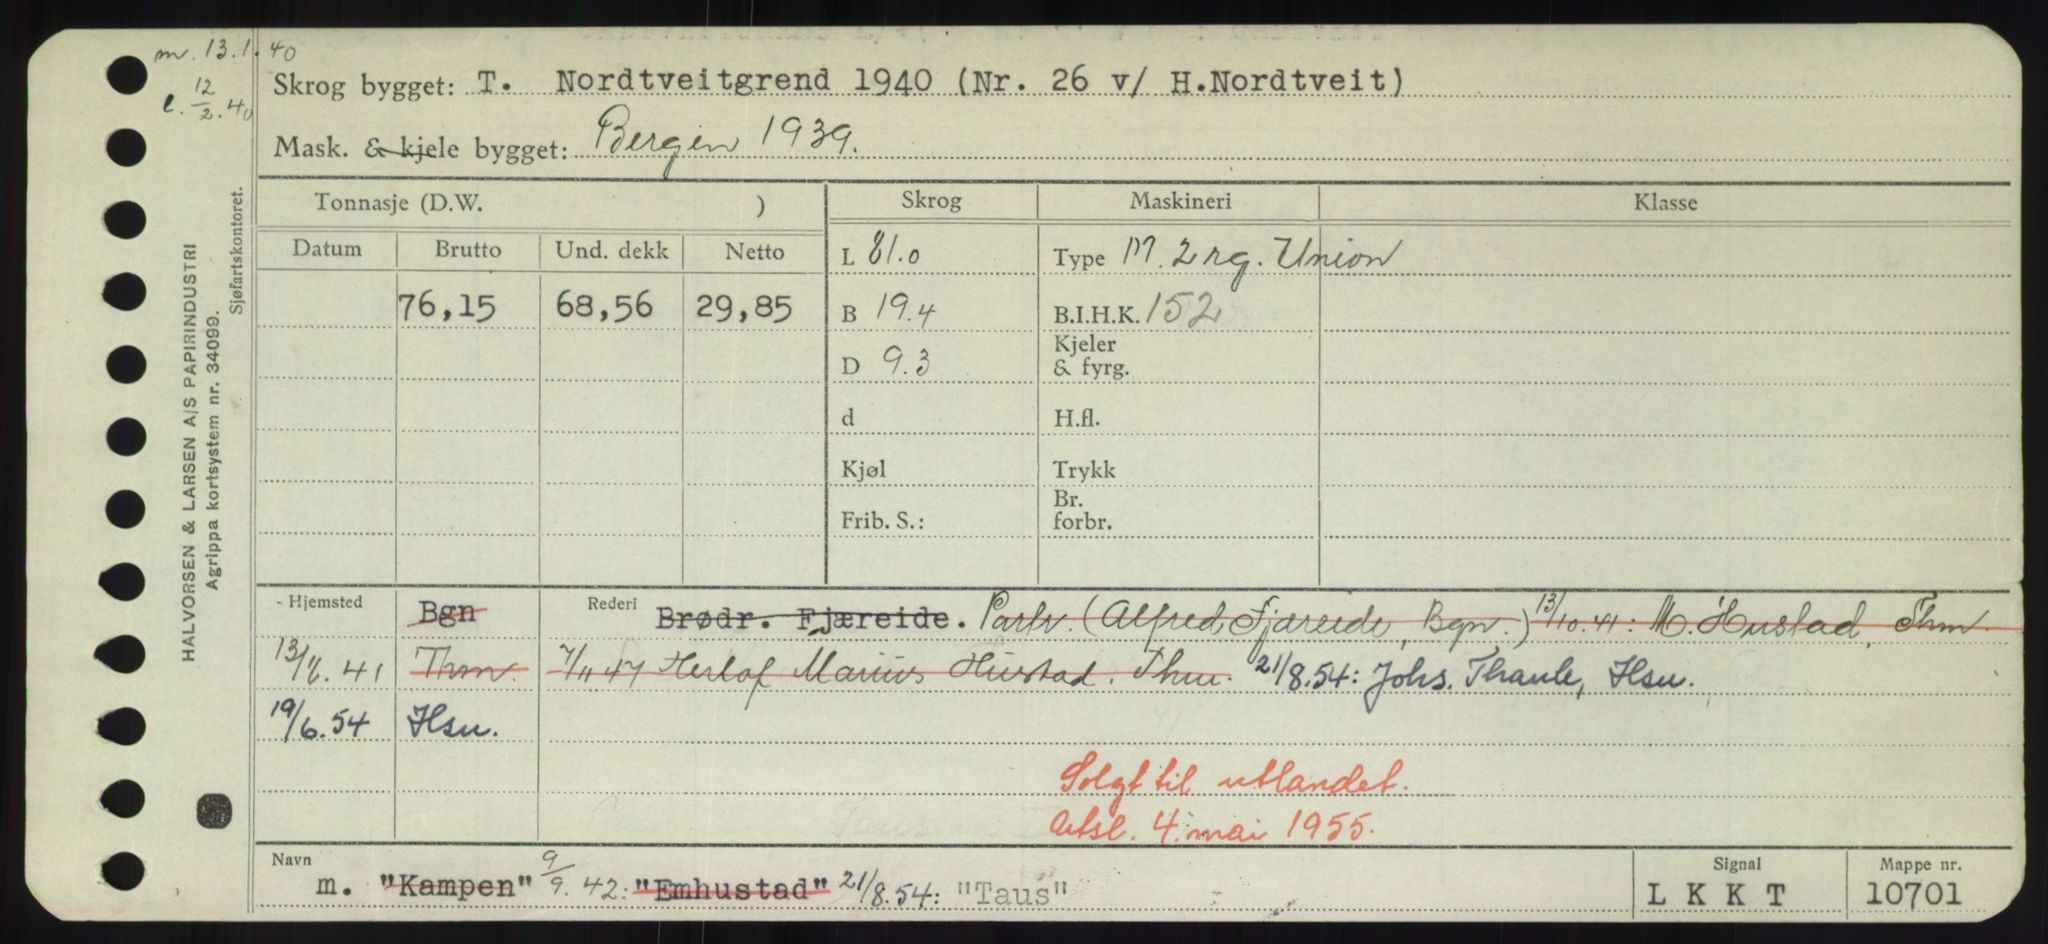 m. 13.1.40
l. 12/2.40
Skrog bygget: T. Nordtveitgrend 1940 (Nr. 26 v/ H.Nordtveit)
Mask. & kjele bygget: Bergen 1939.
Tonnasje (D.W. ) Skrog Maskineri Klasse
Datum Brutto Und. dekk Netto L 81.0 Type M. 2 rg. Union
76,15 68,56 29,85 B 19.4 B.I.H.K. 152
D 9.3 Kjeler & fyrg.
d H.fl.
Kjøl Trykk
Frib. S.: Br. forbr.
Hjemsted Bgn Rederi Brødr. Fjæreide. Partr. (Alfred Fjæreide, Bgn.) 13/10.41: M. Hustad, Thm.
41 Thm. 7/11 47 Herlof Marius Hustad. Thm. 21/8.54: Johs. Thaule, Hsu.
19/6.54 Hsu.
Solgt til utlandet.
Avsl. 4. mai 1955.
Navn Signal Mappe nr.
m. "Kampen" 9/9.42: "Emhustad" 21/8.54: "Taus" LKKT 10701
HALVORSEN & LARSEN A/S PAPIRINDUSTRI
Agrippa kortsystem nr. 34099.
Sjøfartskontoret.